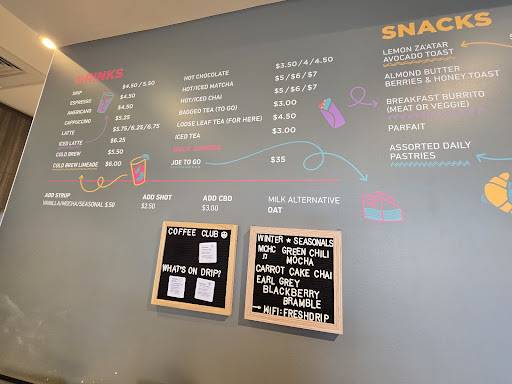 DRINKS
DRIP $4.50/5.90
ESPRESSO $4.50
AMERICANO $4.50
CAPPUCCINO $5.25
LATTE $5.75/6.25/6.75
ICED LATTE $6.25
COLD BREW $5.50
COLD BREW LIMEADE $6.00
HOT CHOCOLATE $3.50/4/4.50
HOT/ICED MATCHA $5/$6/$7
HOT/ICED CHAI $5/$6/$7
BAGGED TEA (TO GO) $3.00
LOOSE LEAF TEA (FOR HERE) $4.50
ICED TEA $3.00
JOE TO GO $35
ADD SYRUP
VANILLA/MOCHA/SEASONAL $.50
ADD SHOT
$2.50
ADD CBD
$3.00
MILK ALTERNATIVE
OAT
SNACKS
LEMON ZA'ATAR
AVOCADO TOAST
ALMOND BUTTER
BERRIES & HONEY TOAST
BREAKFAST BURRITO
(MEAT OR VEGGIE)
PARFAIT
ASSORTED DAILY
PASTRIES
COFFEE CLUB
WHAT'S ON DRIP?
WINTER ★ SEASONALS
MCHC GREEN CHILI
MOCHA
CARROT CAKE CHAI
EARL GREY
BLACKBERRY
BRAMBLE
→ WIFI: FRESHDRIP